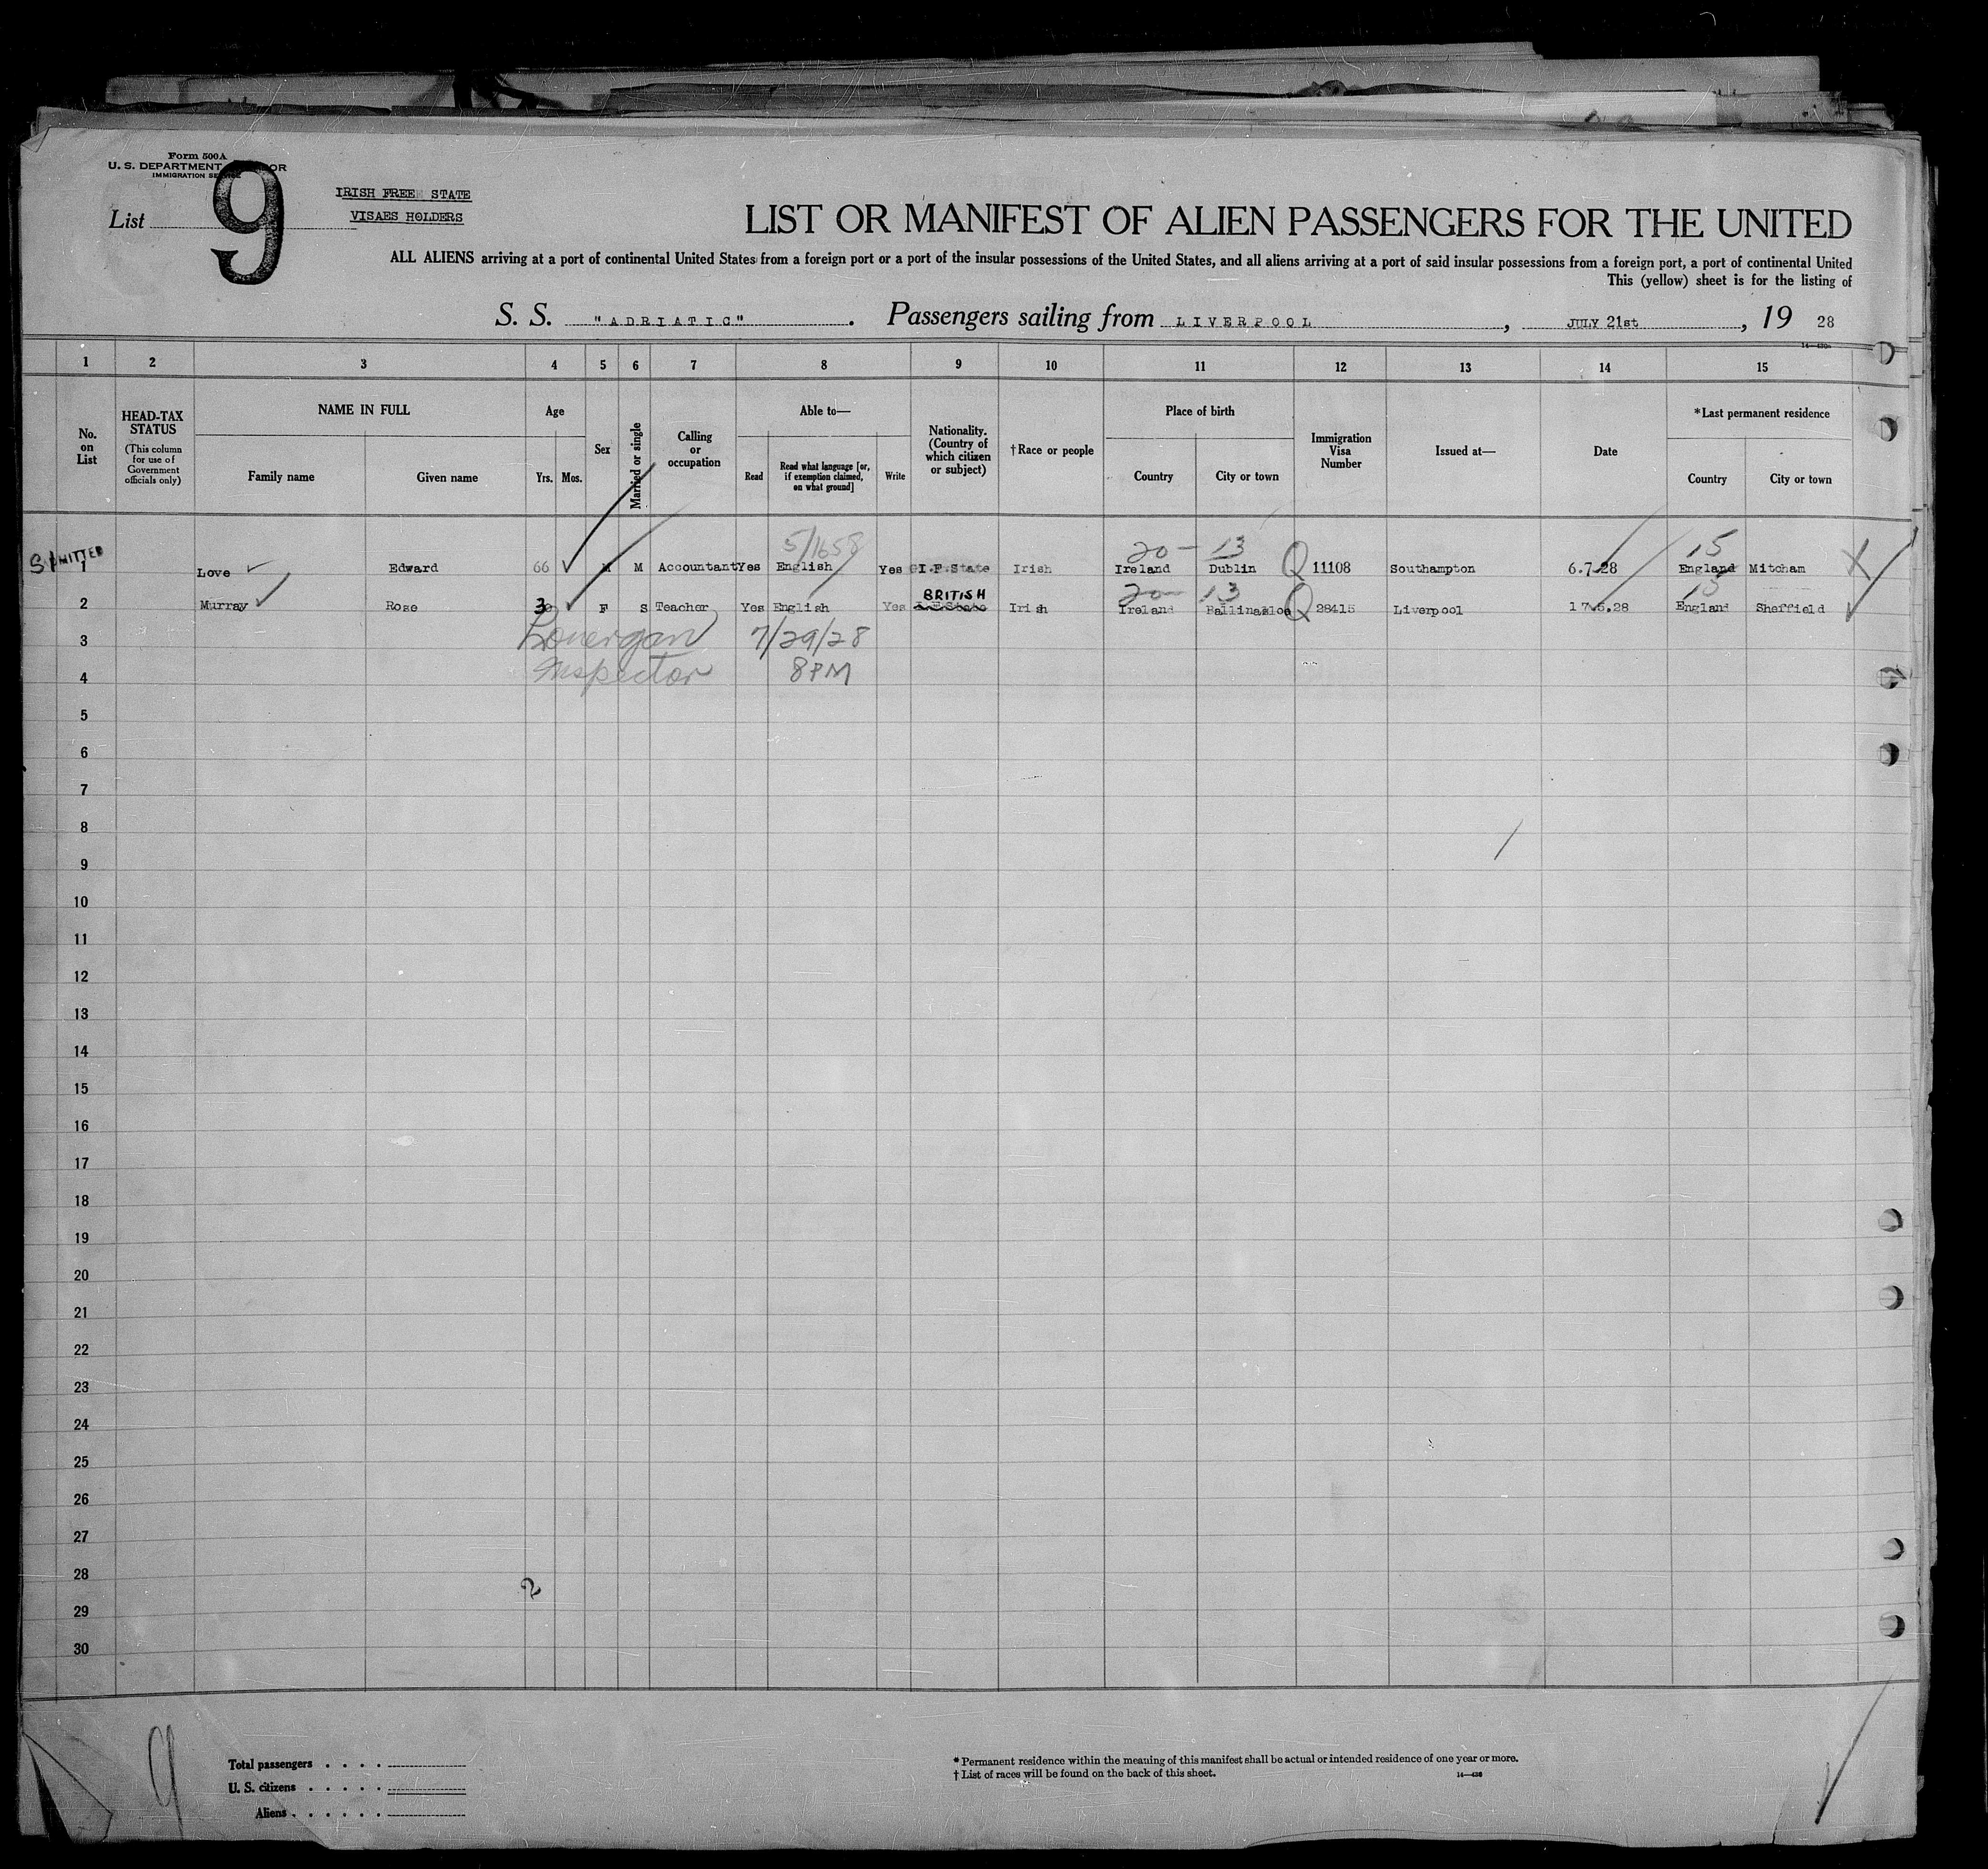 Form 500A
U. S. DEPARTMENT
IMMIGRATION
List 9
IRISH FREE STATE
VISAES HOLDERS
LIST OR MANIFEST OF ALIEN PASSENGERS FOR THE UNITED
ALL ALIENS arriving at a port of continental United States from a foreign port or a port of the insular possessions of the United States, and all aliens arriving at a port of said insular possessions from a foreign port, a port of continental United
This (yellow) sheet is for the listing of
S. S. "ADRIATIC". Passengers sailing from LIVERPOOL, JULY 21st, 19 28
1 2 3 4 5 6 7 8 9 10 11 12 13 14 15
No. on List
HEAD-TAX STATUS
(This column for use of Government officials only)
NAME IN FULL
Family name Given name
Age
Yrs. Mos.
Sex
Married or single
Calling or occupation
Able to—
Read
Read what language [or, if exemption claimed, on what ground]
Write
Nationality. (Country of which citizen or subject)
†Race or people
Place of birth
Country City or town
Immigration Visa Number
Issued at—
Date
*Last permanent residence
Country City or town
5/1658 20 — 13 15
1 Love Edward 66 M M Accountant Yes English Yes I.F.State Irish Ireland Dublin Q 11108 Southampton 6.7.28 England Mitcham X
BRITISH 20 13 15
2 Murray Rose F S Teacher Yes English Yes I.F.State Irish Ireland Ballinasloe Q 28415 Liverpool 17.5.28 England Sheffield
3 Lonergan 7/29/28
4 Inspector 8PM
5
6
7
8
9
10
11
12
13
14
15
16
17
18
19
20
21
22
23
24
25
26
27
28 2
29
30
9
Total passengers
U. S. citizens
Aliens
* Permanent residence within the meaning of this manifest shall be actual or intended residence of one year or more.
† List of races will be found on the back of this sheet.